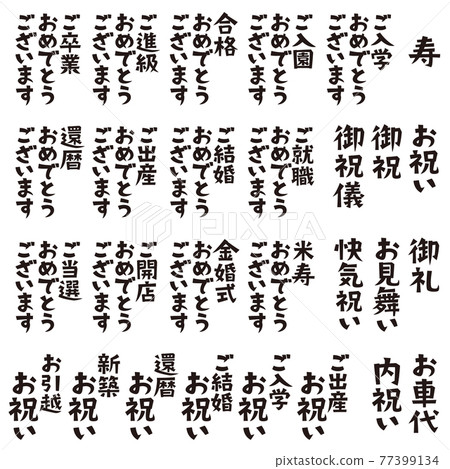 寿
ご入学
おめでとう
ございます
ご入園
おめでとう
ございます
合格
おめでとう
ございます
ご進級
おめでとう
ございます
ご卒業
おめでとう
ございます
お祝い
御祝
御祝儀
ご就職
おめでとう
ございます
ご結婚
おめでとう
ございます
ご出産
おめでとう
ございます
還暦
おめでとう
ございます
御礼
お見舞い
快気祝い
米寿
おめでとう
ございます
金婚式
おめでとう
ございます
ご開店
おめでとう
ございます
ご当選
おめでとう
ございます
お車代
内祝い
ご出産
お祝い
ご入学
お祝い
ご結婚
お祝い
還暦
お祝い
新築
お祝い
お引越
お祝い
PIXTA
pixta.jp - 77399134